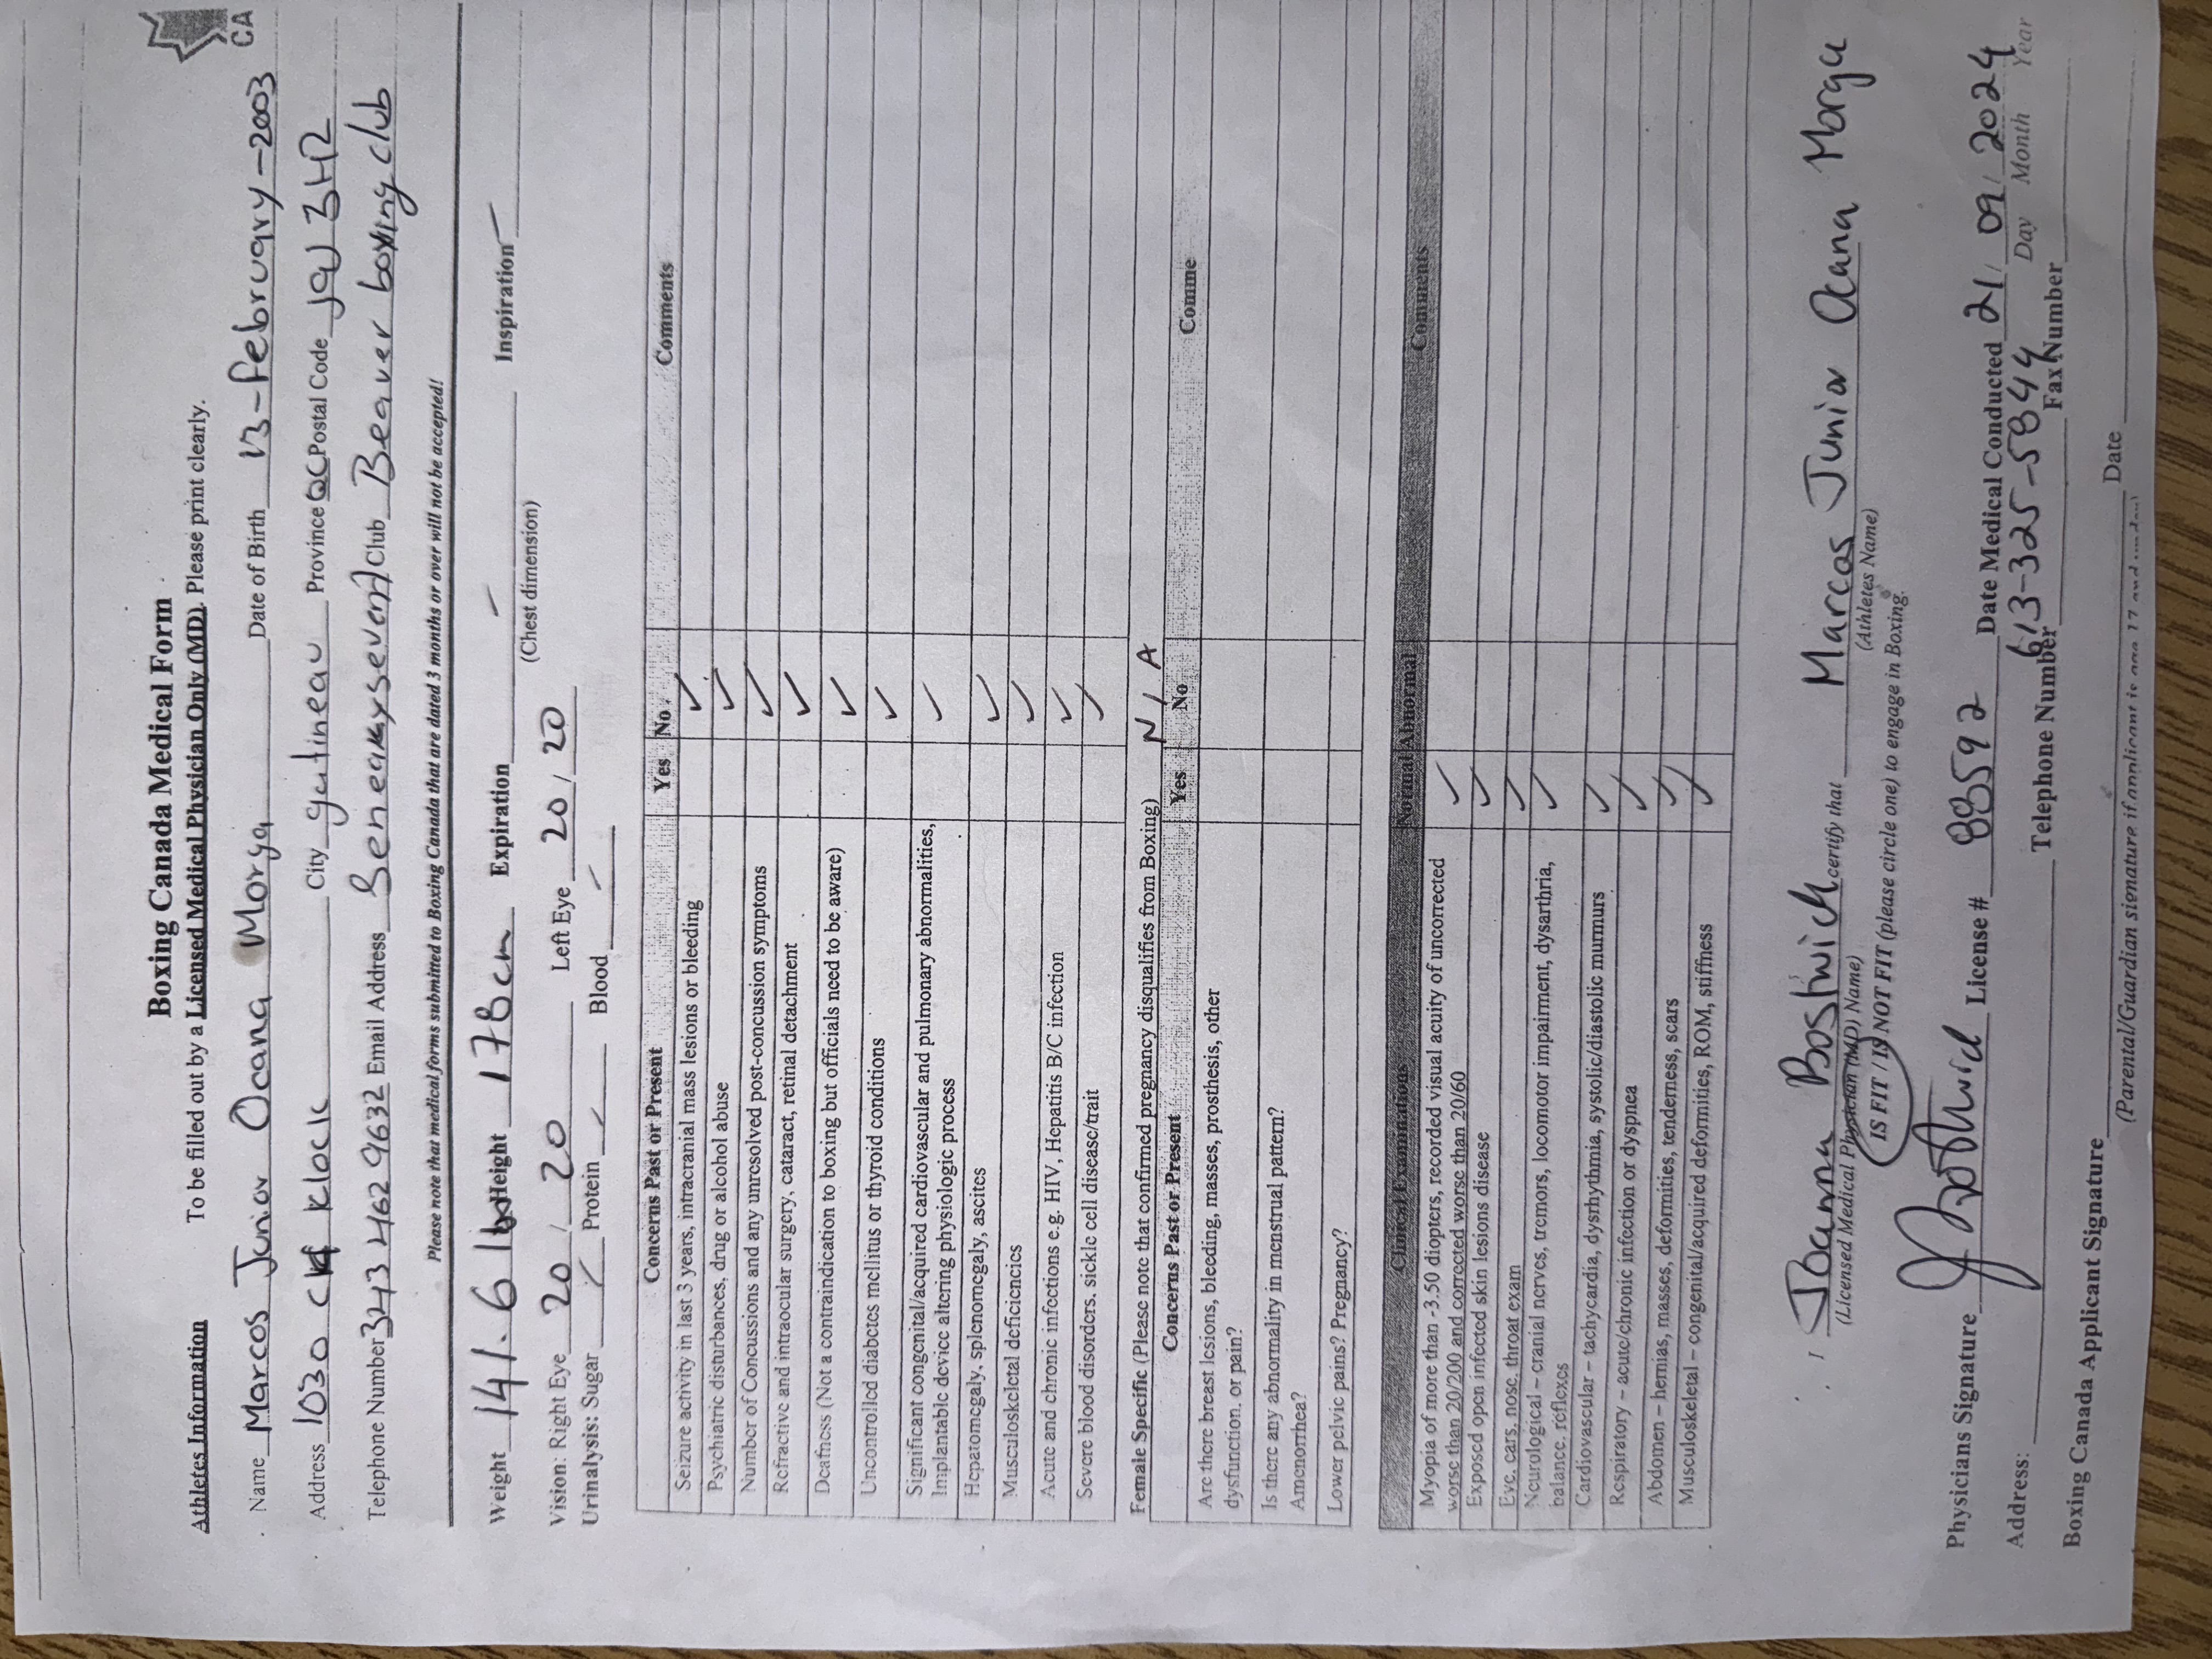 CA
Boxing Canada Medical Form
Athletes Information To be filled out by a Licensed Medical Physician Only (MD). Please print clearly.
Name Marcos Junior Ocana Morga Date of Birth 13-February-2003
Address 1030 Klock City gatineau Province QC Postal Code J9J 3H2
Telephone Number 343 462 9632 Email Address Club Beaver boxing club
Please note that medical forms submitted to Boxing Canada that are dated 3 months or over will not be accepted!
Weight 141.6 lbs Height 178cm Expiration – Inspiration –
(Chest dimension)
Vision: Right Eye 20 / 20 Left Eye 20 / 20
Urinalysis: Sugar Protein Blood
Concerns Past or Present Yes No Comments
Seizure activity in last 3 years, intracranial mass lesions or bleeding ✓
Psychiatric disturbances, drug or alcohol abuse ✓
Number of Concussions and any unresolved post-concussion symptoms ✓
Refractive and intraocular surgery, cataract, retinal detachment ✓
Deafness (Not a contraindication to boxing but officials need to be aware) ✓
Uncontrolled diabetes mellitus or thyroid conditions ✓
Significant congenital/acquired cardiovascular and pulmonary abnormalities, ✓
Implantable device altering physiologic process
Hepatomegaly, splenomegaly, ascites ✓
Musculoskeletal deficiencies ✓
Acute and chronic infections e.g. HIV, Hepatitis B/C infection ✓
Severe blood disorders, sickle cell disease/trait ✓
Female Specific (Please note that confirmed pregnancy disqualifies from Boxing) N / A
Concerns Past or Present Yes No Comme
Are there breast lesions, bleeding, masses, prosthesis, other
dysfunction, or pain?
Is there any abnormality in menstrual pattern?
Amenorrhea?
Lower pelvic pains? Pregnancy?
Clinical Examinations Normal Abnormal Comments
Myopia of more than -3.50 diopters, recorded visual acuity of uncorrected ✓
worse than 20/200 and corrected worse than 20/60
Exposed open infected skin lesions disease ✓
Eye, ears, nose, throat exam ✓
Neurological – cranial nerves, tremors, locomotor impairment, dysarthria, ✓
balance, reflexes
Cardiovascular – tachycardia, dysrhythmia, systolic/diastolic murmurs ✓
Respiratory – acute/chronic infection or dyspnea ✓
Abdomen – hernias, masses, deformities, tenderness, scars ✓
Musculoskeletal – congenital/acquired deformities, ROM, stiffness ✓
I Joanna Bostwick certify that Marcos Junior Ocana Morga
(Licensed Medical Physician (MD) Name) (Athletes Name)
IS FIT / IS NOT FIT (please circle one) to engage in Boxing.
Physicians Signature License # 88592 Date Medical Conducted 21 / 09 / 2024
Day Month Year
Address: Telephone Number 613-325-5844 Fax Number
Boxing Canada Applicant Signature Date
(Parental/Guardian signature if applicant is age 17 and